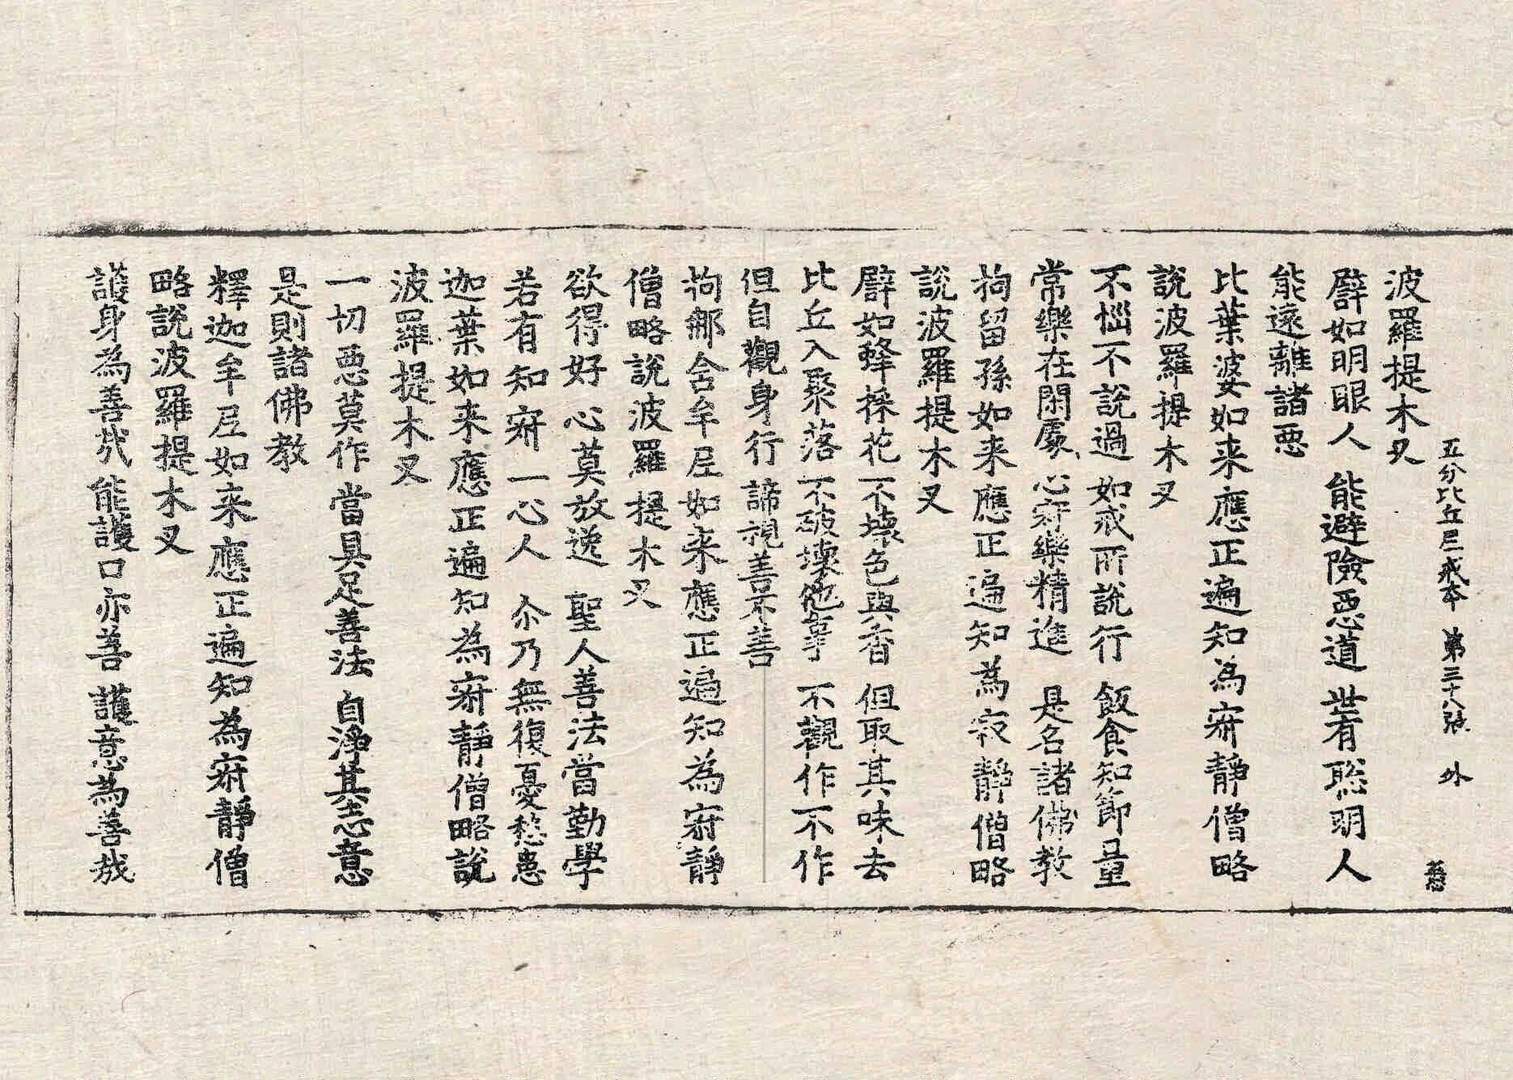 五分比丘尼戒本 第三十八張 外
波羅提木叉
譬如明眼人 能避險惡道 世有聡明人
能遠離諸惡
比葉婆如来應正遍知為寂靜僧略
說波羅提木叉
不惱不說過 如戒所說行 飯食知節量
常樂在閑處 心寂樂精進 是名諸佛教
拘留孫如来應正遍知為寂靜僧略
說波羅提木叉
譬如蜂採花 不壞色與香 但取其味去
比丘入聚落 不破壞他事 不觀作不作
但自觀身行 諦視善不善
拘那含牟尼如来應正遍知為寂靜
僧略說波羅提木叉
欲得好心莫放逸 聖人善法當勤學
若有知寂一心人 尒乃無復憂愁患
迦葉如来應正遍知為寂靜僧略說
波羅提木叉
一切惡莫作 當具足善法 自淨其志意
是則諸佛教
釋迦牟尼如来應正遍知為寂靜僧
略說波羅提木叉
護身為善哉 能護口亦善 護意為善哉